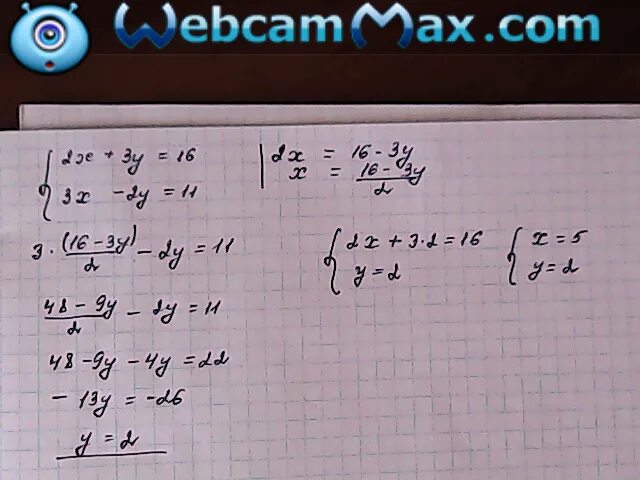 WebcamMax.com
2x + 3y = 16
3x - 2y = 11
2x = 16 - 3y
x = (16 - 3y)/2
3 · (16 - 3y)/2 - 2y = 11
(48 - 9y)/2 - 2y = 11
48 - 9y - 4y = 22
- 13y = -26
y = 2
2x + 3·2 = 16
y = 2
x = 5
y = 2